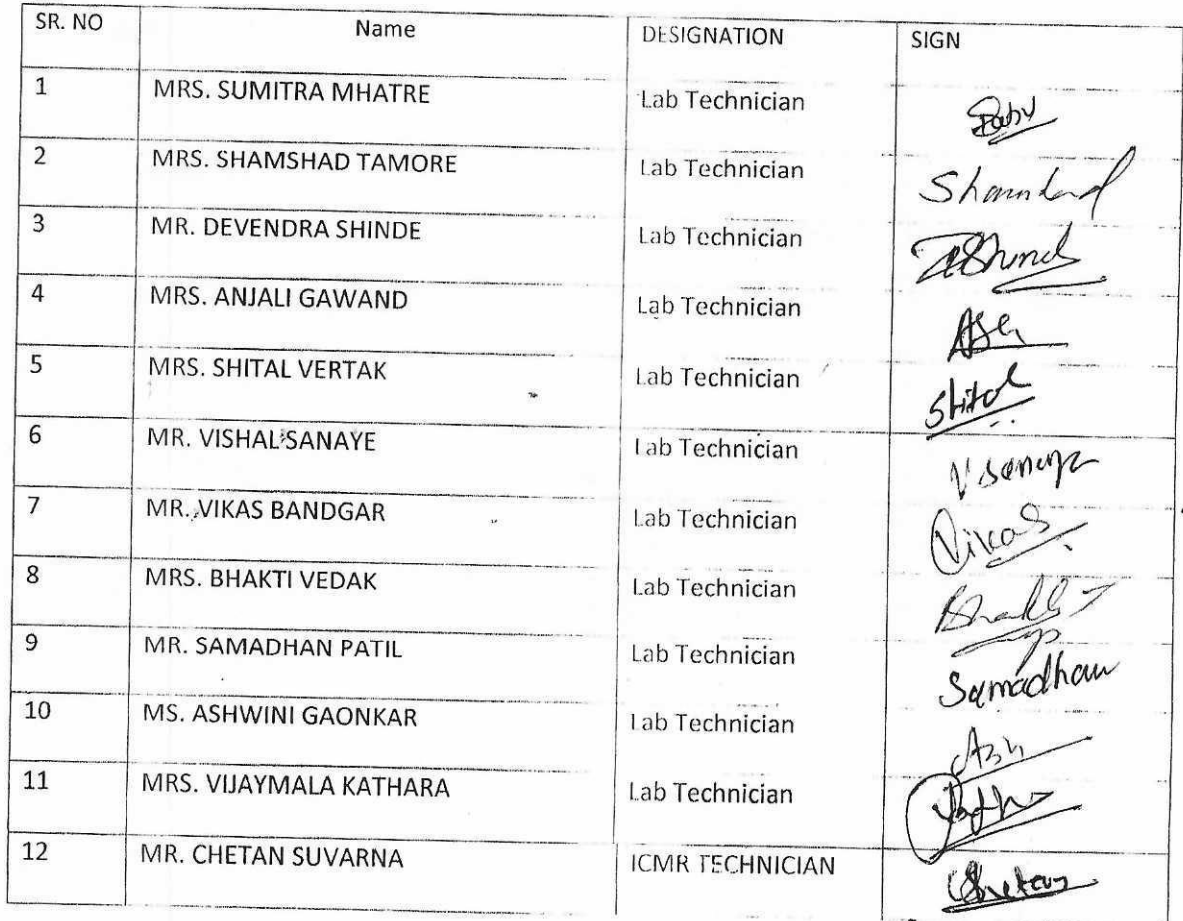 SR. NO Name DESIGNATION SIGN
1 MRS. SUMITRA MHATRE Lab Technician
2 MRS. SHAMSHAD TAMORE Lab Technician Shamshad
3 MR. DEVENDRA SHINDE Lab Technician
4 MRS. ANJALI GAWAND Lab Technician
5 MRS. SHITAL VERTAK Lab Technician Shital
6 MR. VISHAL SANAYE Lab Technician V Sanaye
7 MR. VIKAS BANDGAR Lab Technician Vikas
8 MRS. BHAKTI VEDAK Lab Technician
9 MR. SAMADHAN PATIL Lab Technician Samadhan
10 MS. ASHWINI GAONKAR Lab Technician
11 MRS. VIJAYMALA KATHARA Lab Technician
12 MR. CHETAN SUVARNA ICMR TECHNICIAN Chetan